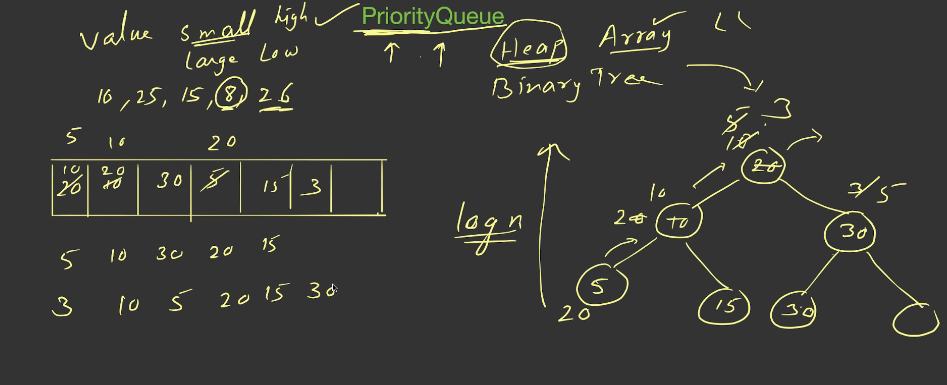 value small high ✓ PriorityQueue
large low
Heap Array
Binary Tree
10, 25, 15, 8, 26
5 10 20
10 20
20 10 30 5 15 3
5 10 30 20 15
3 10 5 20 15 30
log n
5 3
10
20
10 3/5
20 10 30
5 15 30
20